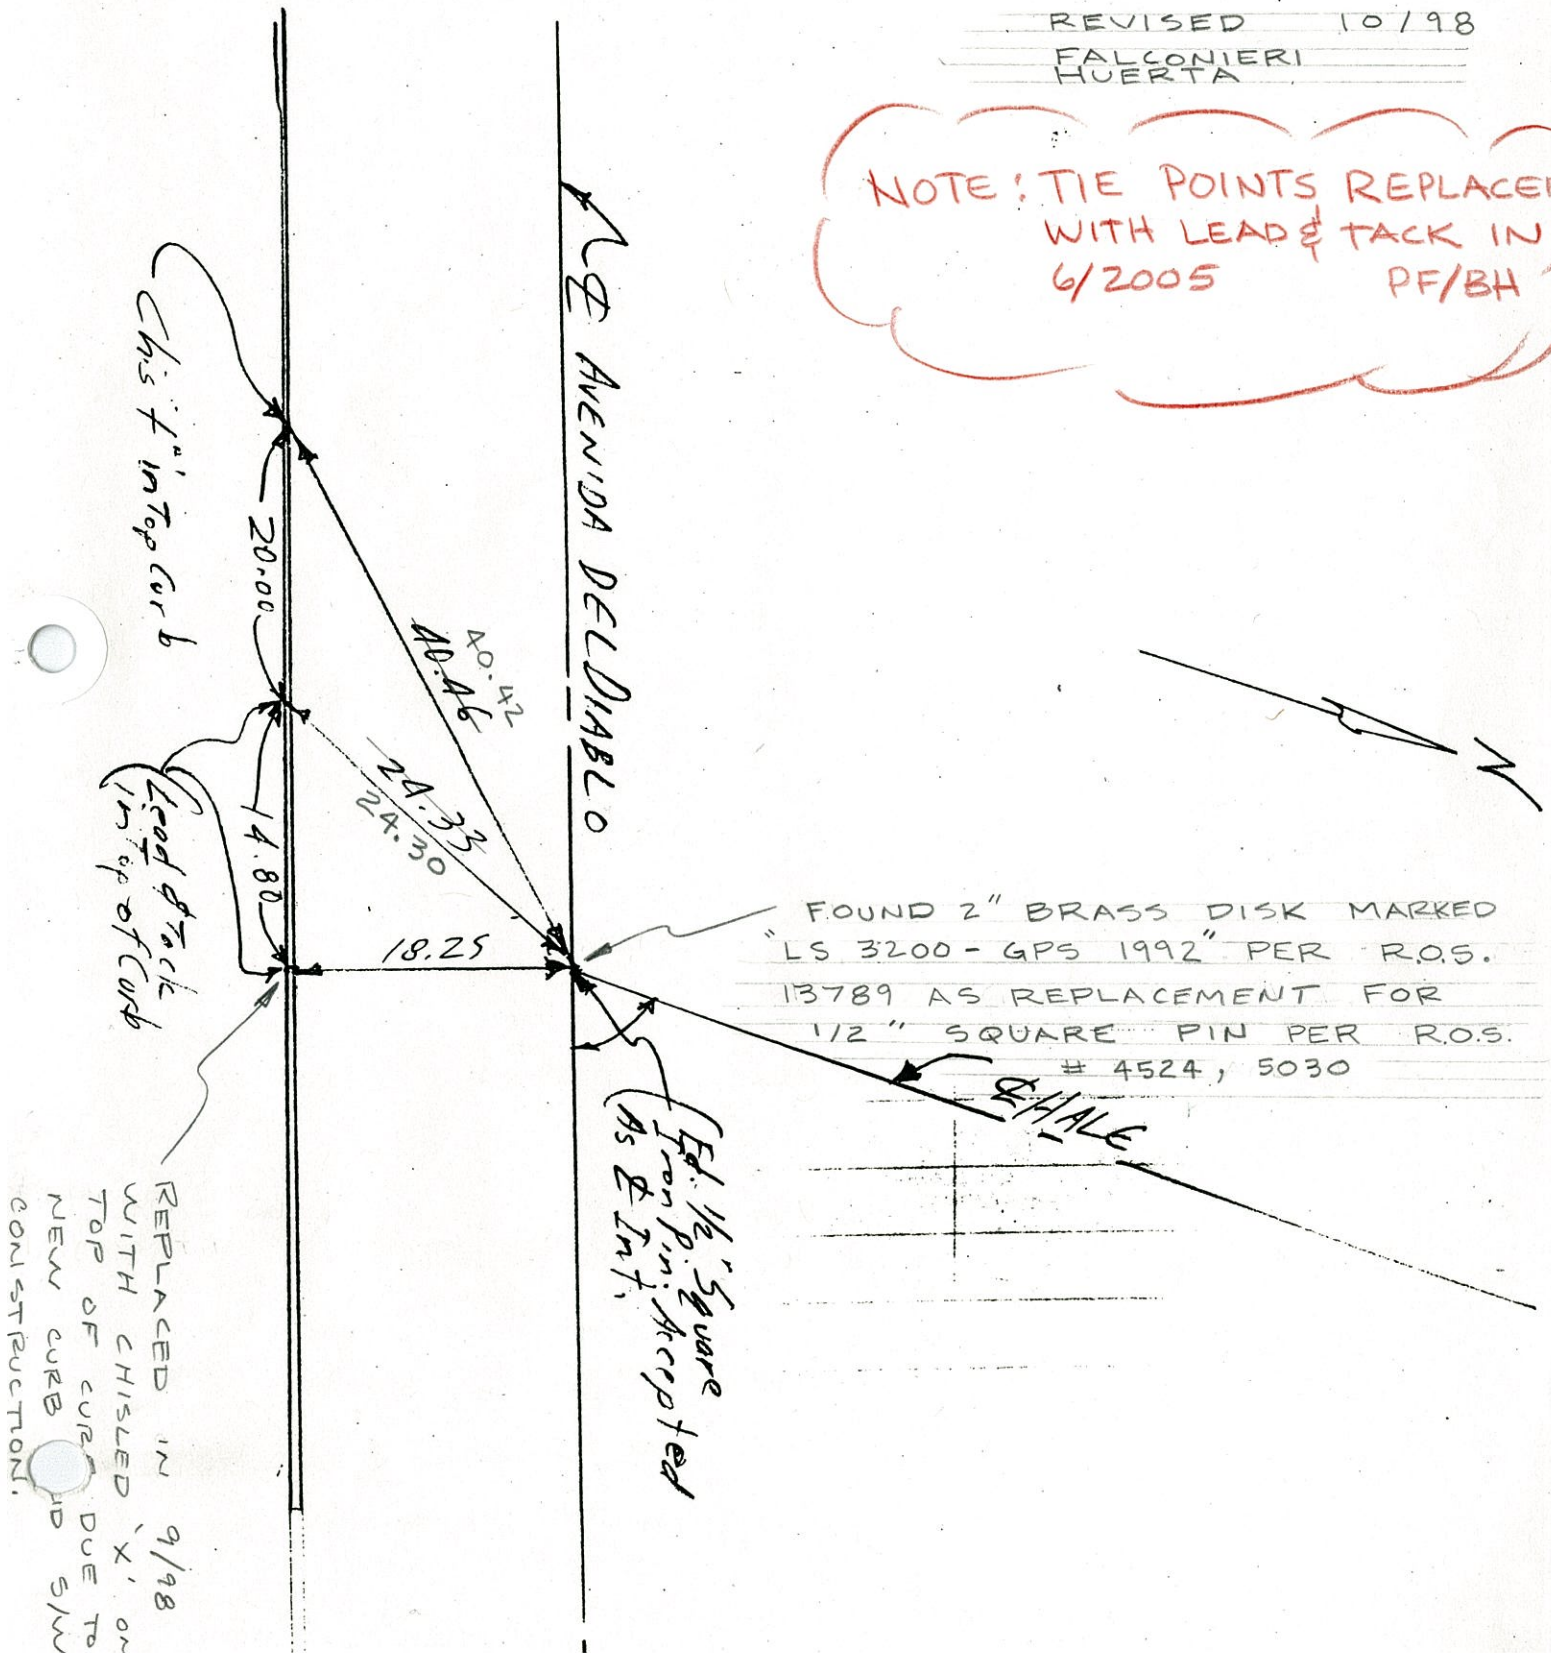 REVISED 10/98
FALCONIERI
HUERTA
NOTE: TIE POINTS REPLACED
WITH LEAD & TACK IN
6/2005 PF/BH
℄ AVENIDA DEL DIABLO
Chis "+" in Top Curb
20.00
40.46
40.42
24.33
24.30
14.80
Lead & Tack
in Top of Curb
18.25
FOUND 2" BRASS DISK MARKED
"LS 3200 - GPS 1992" PER R.O.S.
13789 AS REPLACEMENT FOR
1/2" SQUARE PIN PER R.O.S.
# 4524, 5030
℄ HALE
N
Fd. 1/2" Square
Iron pin. Accepted
As ℄ Int.
REPLACED IN 9/98
WITH CHISLED 'X' ON
TOP OF CURB DUE TO
NEW CURB AND S/W
CONSTRUCTION.